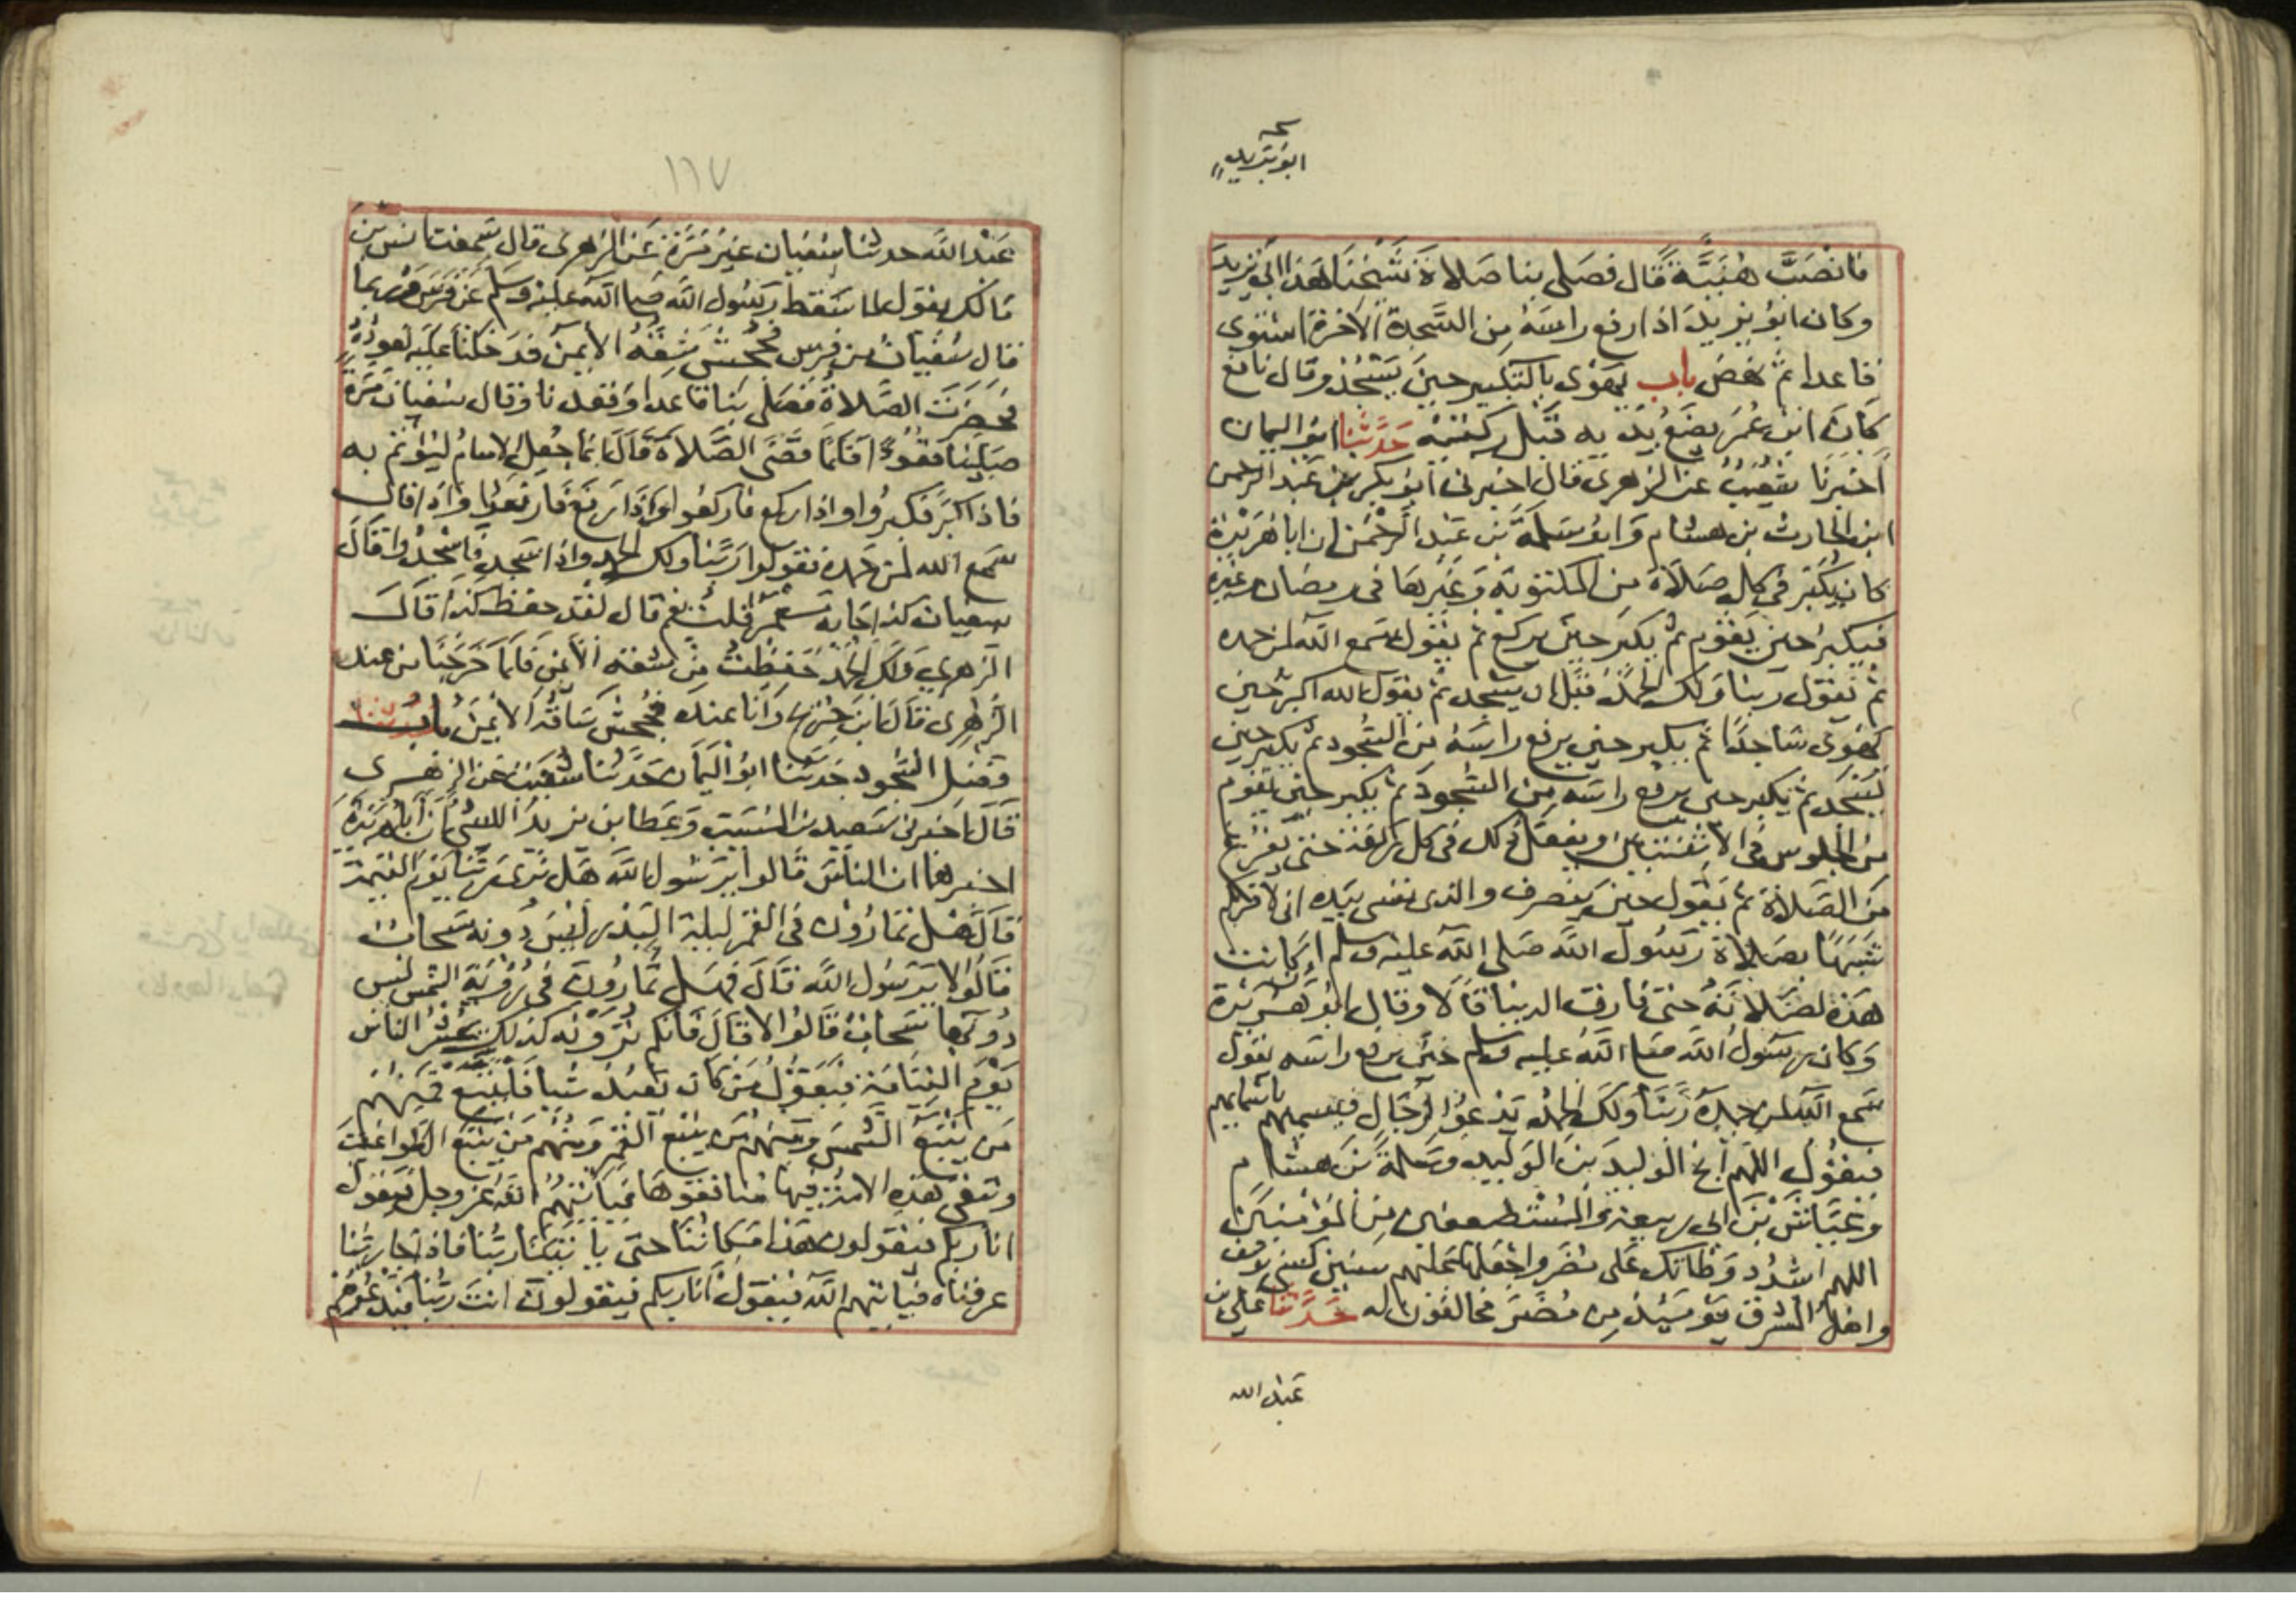 نسخه
ابو بريد
فانصت هنية قال فصلى بنا صلاة شيخنا هذا ابي يزيد
وكان ابو يزيد اذا رفع راسه من السجدة الاخرة استوى
قاعدا ثم نهض باب يهوى بالتكبير حين يسجد وقال نافع
كان ابن عمر يضع يديه قبل ركبتيه حدثنا ابو اليمان
اخبرنا شعيب عن الزهرى قال اخبرنى ابو بكر بن عبد الرحمن
ابن الحارث بن هشام وابو سلمة بن عبد الرحمن ان ابا هريرة
كان يكبر فى كل صلاة من المكتوبة وغيرها فى رمضان وغيره
فيكبر حين يقوم ثم يكبر حين يركع ثم يقول سمع الله لمن حمده
ثم يقول ربنا ولك الحمد قبل ان يسجد ثم يقول الله اكبر حين
يهوى ساجدا ثم يكبر حين يرفع راسه من السجود ثم يكبر حين
يسجد ثم يكبر حين يرفع راسه من السجود ثم يكبر حين يقوم
من الجلوس فى الاثنتين ويفعل ذلك فى كل ركعة حتى يفرغ
من الصلاة ثم يقول حين ينصرف والذى نفسى بيده انى لاقربكم
شبها بصلاة رسول الله صلى الله عليه وسلم ان كانت
هذه لصلاته حتى فارق الدنيا قالا وقال ابو هريرة
وكان رسول الله صلى الله عليه وسلم حين يرفع راسه يقول
سمع الله لمن حمده ربنا ولك الحمد يدعو لرجال فيسميهم باسمايهم
فيقول اللهم انج الوليد بن الوليد وسلمة بن هشام
وعياش بن ابى ربيعة والمستضعفين من المؤمنين
اللهم اشدد وطاتك على مضر واجعلها عليهم سنين كسنى يوسف
واهل المشرق يوميذ من مضر مخالفون له حدثنا على بن
عبد الله
١١٧
عبد الله حدثنا سفيان غير مرة عن الزهرى قال سمعت انس بن
مالك يقول لما سقط رسول الله صلى الله عليه وسلم عن فرس وربما
قال سفيان من فرس فجحش شقه الايمن فدخلنا عليه نعوده
فحضرت الصلاة فصلى بنا قاعدا وقعدنا وقال سفيان مرة
صلينا قعودا فلما قضى الصلاة قال انما جعل الامام ليؤتم به
فاذا كبر فكبروا واذا ركع فاركعوا واذا رفع فارفعوا واذا قال
سمع الله لمن حمده فقولوا ربنا ولك الحمد واذا سجد فاسجدوا قال
سفيان كذا جا به معمر قلت نعم قال لقد حفظ كذا قال
الزهرى ولك الحمد حفظت من شقه الايمن فلما خرجنا من عند
الزهرى قال ابن جريج وانا عنده فجحش ساقه الايمن باب
وفضل السجود حدثنا ابو اليمان حدثنا شعيب عن الزهرى
قال اخبرنى سعيد بن المسيب وعطا بن يزيد الليثى ان ابا هريرة
اخبرهما ان الناس قالوا يرسول الله هل نرى ربنا يوم القيمة
قال هل تمارون فى القمر ليلة البدر ليس دونه سحاب
قالوا لا يرسول الله قال فهل تمارون فى رؤية الشمس ليس
دونها سحاب قالوا لا قال فانكم ترونه كذلك يحشر الناس
يوم القيامة فيقول من كان يعبد شيا فليتبع فمنهم
من يتبع الشمس ومنهم من يتبع القمر ومنهم من يتبع الطواغيت
وتبقى هذه الامة فيها منافقوها فياتيهم الله عز وجل فيقول
انا ربكم فيقولون هذا مكاننا حتى ياتينا ربنا فاذا جا ربنا
عرفناه فياتيهم الله فيقول انا ربكم فيقولون انت ربنا فيدعوهم